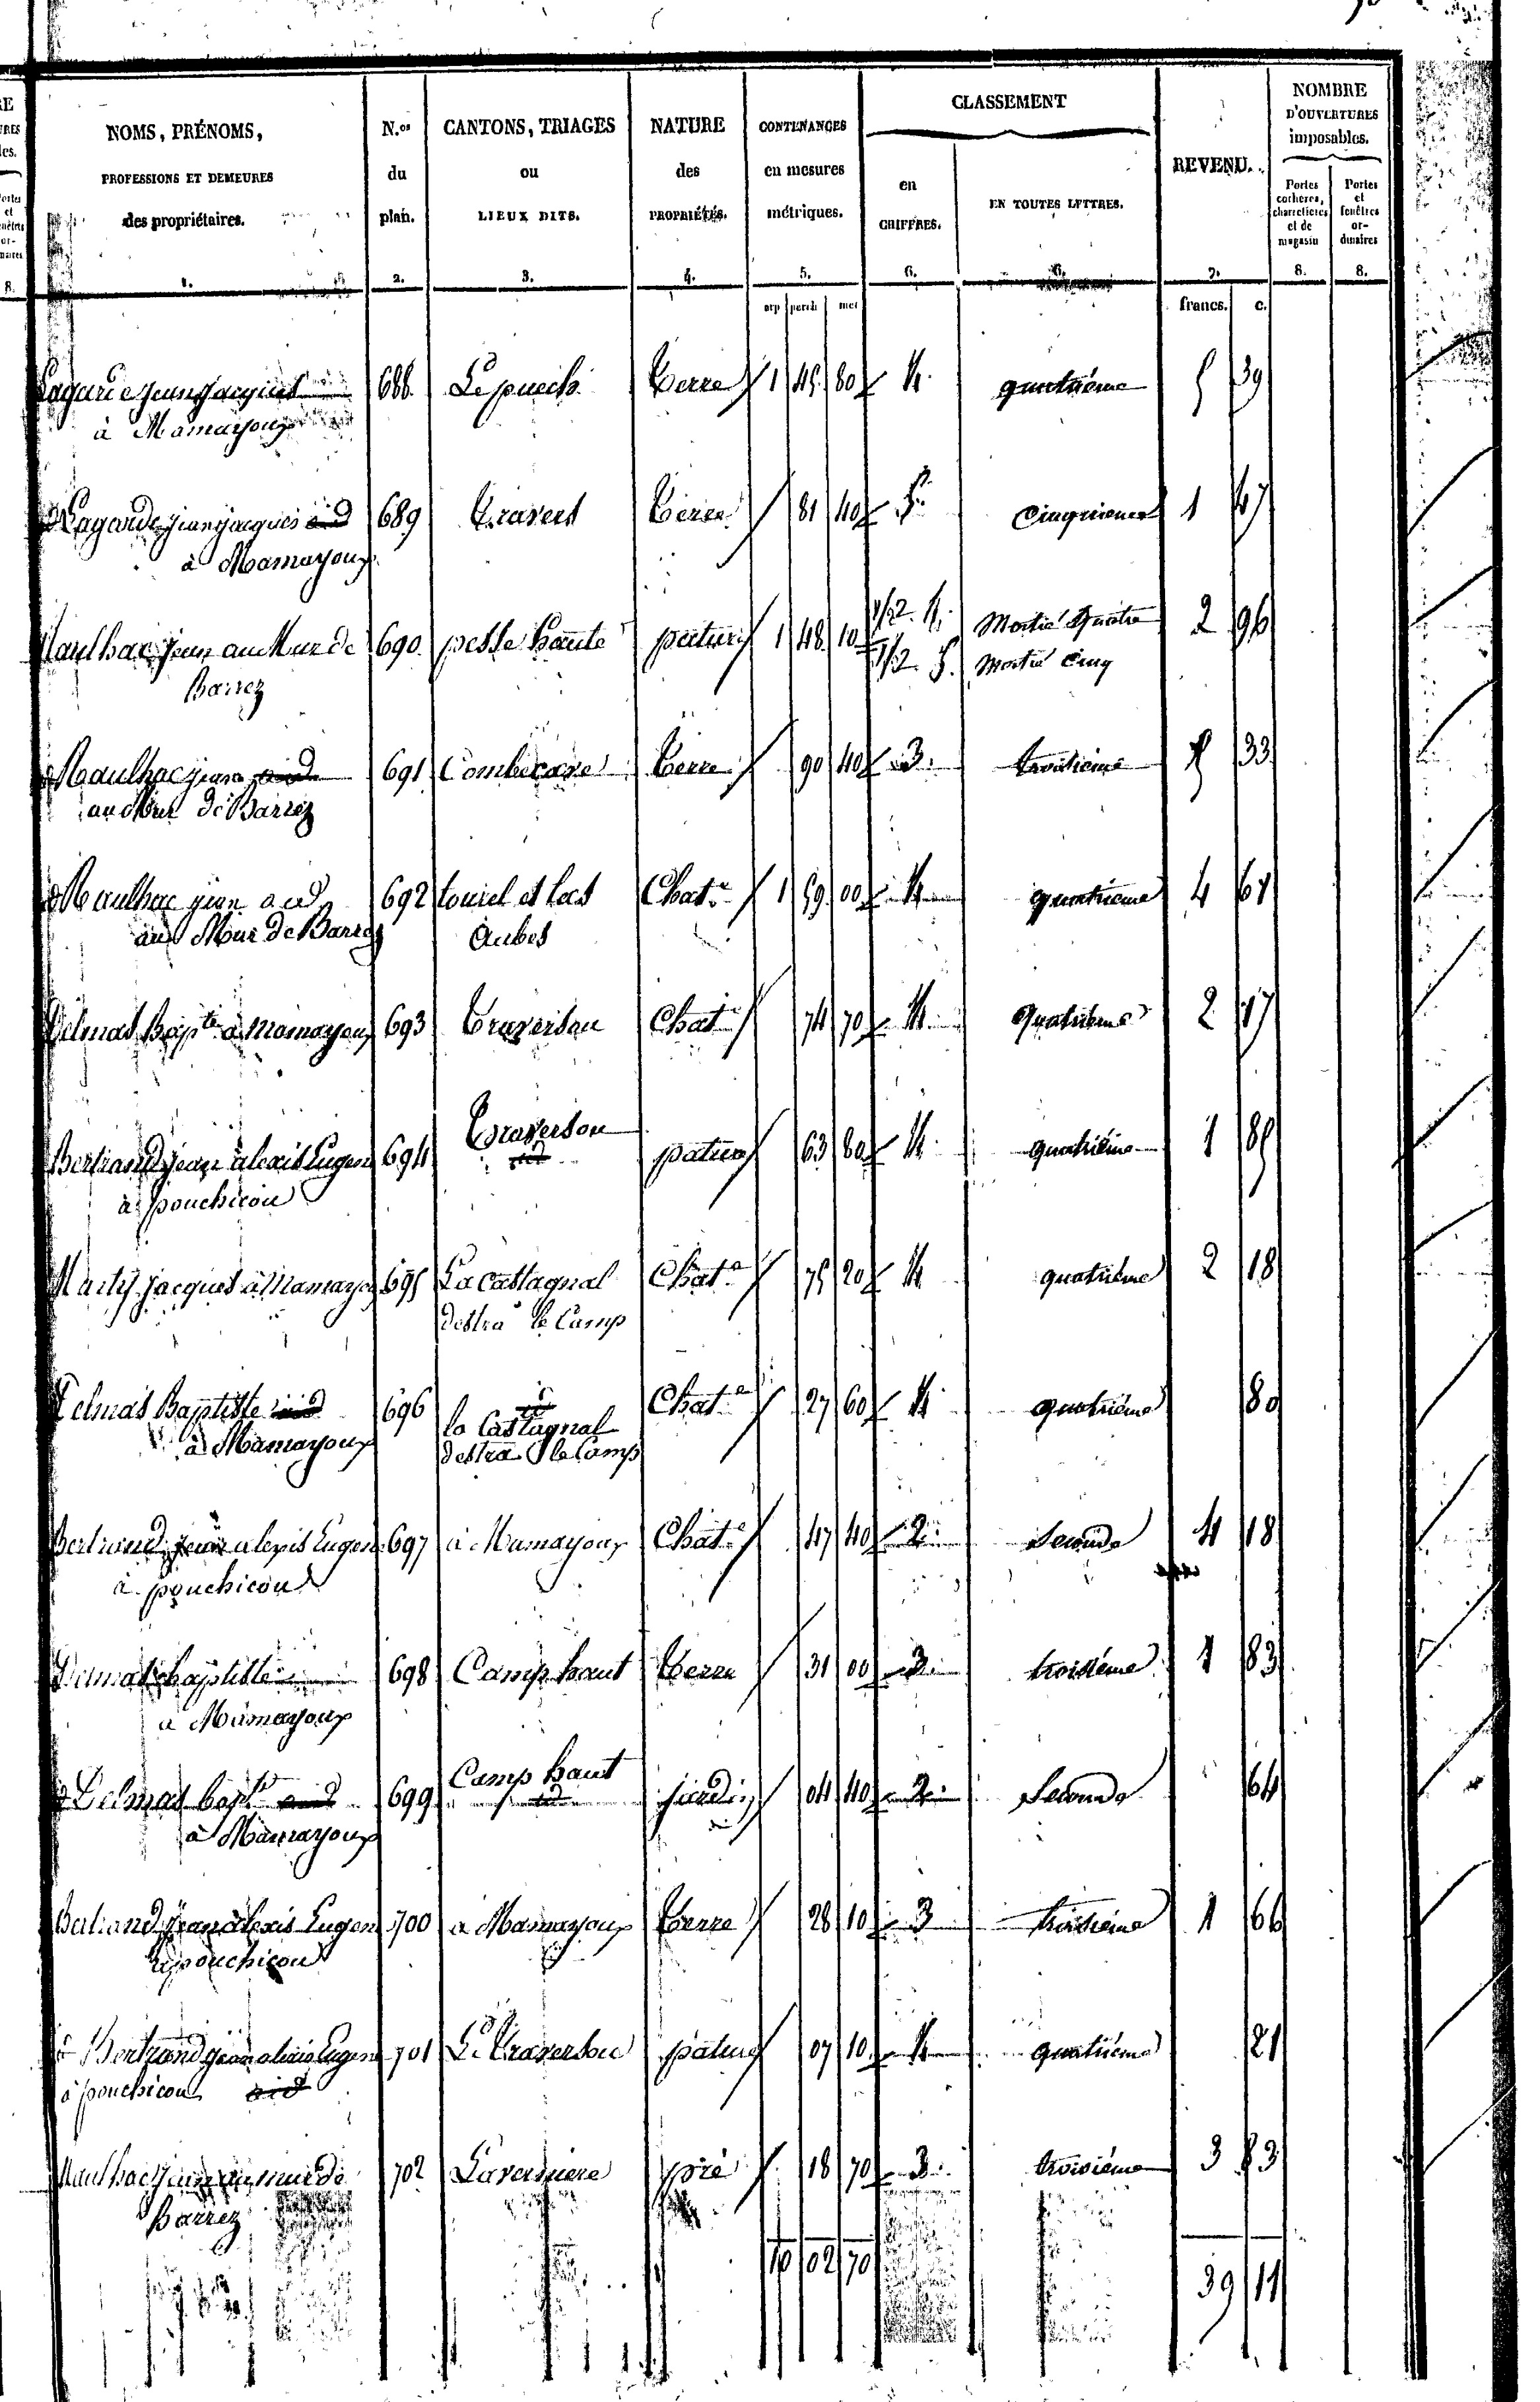 NOMS, PRÉNOMS,
PROFESSIONS ET DEMEURES
des propriétaires.
1.
N.os
du
plan.
2.
CANTONS, TRIAGES
ou
LIEUX DITS.
3.
NATURE
des
PROPRIÉTÉS.
4.
CONTENANCES
en mesures
métriques.
5.
CLASSEMENT
en
CHIFFRES.
6.
EN TOUTES LETTRES.
REVENU.
7.
NOMBRE
D'OUVERTURES
imposables.
Portes
cochères,
charretières
et de
magasin
8.
Portes
et
fenêtres
or-
dinaires
8.
arp perch met
francs. c.
Lagarde jean jacques 688 Le puech Terre 1 45 80 4. quatrième 5 39
à Mamayoux
Lagarde jean jacques 689 Travers Terre 81 40 5. Cinquieme 1 47
à Mamayoux
Maulhac jean au Mur de 690 haute pature 1 48 10 1/2 4. Moitié Quatre 2 96
Barrez 1/2 5. Moitié Cinq
Maulhac jean 691 Terre 90 40 3. troisieme 5 33
au Mur de Barrez
Maulhac jean 692 touriel et las Chat.e 1 59 00 4 quatrieme 4 61
au Mur de Barrez Aubes
Delmas Bapte à Mamayoux 693 Traversou Chat.e 74 70 4 Quatrieme 2 17
Bertrand jean alexis Eugen 694 Traversou pature 63 80 4 quatriéme 1 85
à pouchicou
Marty jacques à Mamayou 695 La Castagnal Chat.e 75 20 4 quatriéme 2 18
destra le Camp
Delmas Baptiste 696 la Castagnal Chat.e 27 60 4 quatriéme 80
à Mamayoux destra le Camp
Bertrand jean alexis Eugen 697 à Mamayoux Chat.e 47 40 2 Seconde 4 18
à pouchicou
Delmas baptiste 698 Camp haut Terre 31 00 3 troisiéme 1 83
à Mamayoux
Delmas bapte 699 Camp haut jardin 04 40 2 Seconde 64
à Mamayoux
Bertrand jean alexis Eugen 700 à Mamayoux Terre 28 10 3 troisiéme 1 66
à pouchicou
Bertrand jean alexis Eugen 701 Le Traversou pature 07 10 4 quatriéme 21
à pouchicou
Maulhac jean au mur de 702 pré 18 70 3 troisiéme 3 83
Barrez
10 02 70 39 11